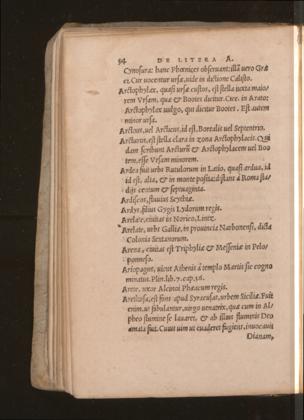 94 DE LITERA A.
Cynosuræ: hanc Phœnices obseruant: illã uero Græ
ci. Cur uocentur ursæ, uide in dictione Calisto.
Arctophylax, quasi ursæ custos, est stella iuxta maio-
rem Vrsam, quæ & Bootes dicitur. Cice. in Arato:
Arctophylax uulgo, qui dicitur Bootes. Est autem
minor ursa.
Arctous, uel Arcticus, id est, Borealis uel Septentrio.
Arcturus, est stella clara in zona Arctophylacis. Qui
dam scribunt Arcturũ & Arctophylacem uel Boo
tem, esse Vrsam minorem.
Ardea fuit urbs Rutulorum in Latio, quasi ardua, id
id est, alta, & in monte posita: distans à Roma sta-
dijs centum & septuaginta.
Ardiscus, fluuius Scythiæ.
Ardys, filius Gygis Lydorum regis.
Arelate, ciuitas in Norico, Lintz.
Arelate, urbs Galliæ, in prouincia Narbonensi, dicta
Colonia Sextanorum.
Arena, ciuitas est Triphyliæ & Messeniæ in Pelo-
ponneso.
Ariopagus, uicus Athenis à templo Martis sic cogno
minatus. Plin. lib. 7. cap. 56.
Arete, uxor Alcinoi Phæacum regis.
Arethusa, est fons apud Syracusas, urbem Siciliæ. Fuit
enim, ut fabulantur, uirgo uenatrix, quæ cum in Al-
pheo flumine se lauaret, & ab illius fluminis Deo
amata fuit. Cuius uim ut euaderet fugiens, inuocauit
Dianam,